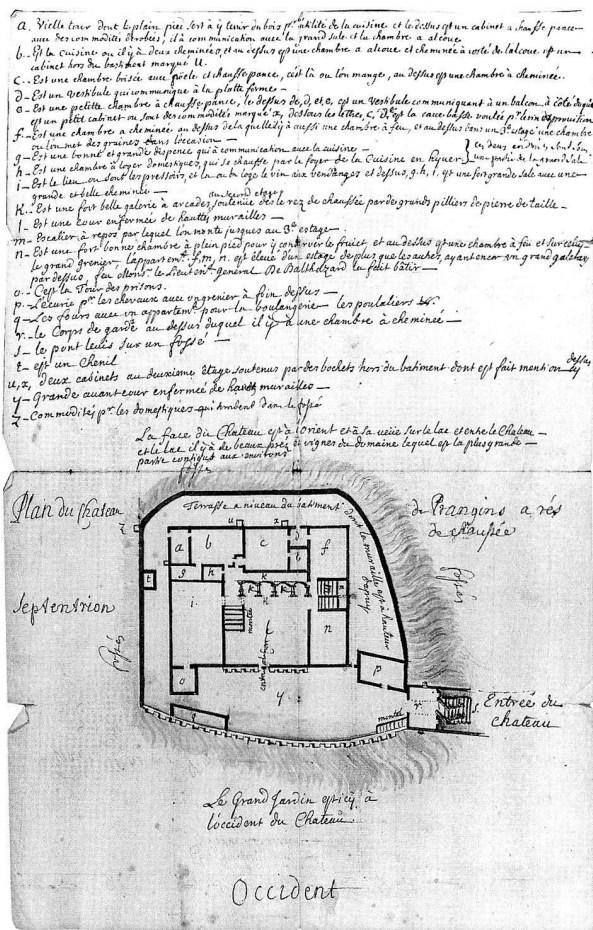 a. Vielle tour dont le plain pied sert à y tenir du bois pr. utilité de la cuisine et le dessus est un cabinet a chauffe pance
avec des commodités derobées, il à communication avec la grand sale et la chambre a alcove
b. Est la Cuisine ou il y à deux cheminées, et au dessus est une chambre a alcove et cheminée à costé de lalcove, est un
cabinet hors du bastiment marqué u.
c. Est une chambre boisée avec poële et chauffe pance, c'est là ou lon mange, au dessus est une chambre à cheminée.
d. Est un Vestibule qui communique à la platte forme
e. Est une petitte chambre à chauffe pance, le dessus de, d, et, e, est un vestibule communiquant à un balcon, à côté duquel
est un petit cabinet ou sont des commodités marqué x, dessous les lettres, c, d, est la cave basse voutée
f. Est une chambre a cheminée au dessus de la quelle il y à aussi une chambre à feu, et au dessus dans un 3e. étage une chambre
ou lon met des graines dans loccasion
g. Est une bonne et grande dispence qui à communication avec la cuisine
h. Est une chambre à loger domestiques, qui se chauffe par le foyer de la Cuisine en hyver
i. Est le lieu ou sont les pressoirs, et la ou on loge le vin aux vendanges et dessus, g. h, i, est une fort grande sale avec une
grande et belle cheminée
au second étage
k. Est une fort belle galerie à arcades, soutenue dés le rez de chaussée par de grands pilliers de pierre de taille
l. Est une cour enfermée de hauttes murailles
m. Escalier à repos par lequel lon monte jusques au 3e. estage
n. Est une fort bonne chambre à plein pied pour y conserver le fruict et au dessus est une chambre à feu et sur celuy
le grand grenier, lappartemt. f, m, n. est éleué d'un estage de plus que les autres, ayant encor un grand galetay
par dessus, feu Monsr. le Lieutent. General De Balthezard la fait bâtir
o. C'est la Tour des prisons.
p. L'ecurie pr. les chevaux avec un grenier à foin dessus
q. Les fours avec un appartemt. pour la boulangerie les poulaliers
r. le Corps de garde au dessus duquel il y à une chambre à cheminée
s. le pont leuis sur un fossé
t. est un Chenil
u, x, deux cabinets au deuxieme étage soutenus par des bochets hors du batiment dont est fait mention cy dessus
y. Grande avant cour enfermée de hauttes murailles
z. Commodités pr. les domestiques qui tombent dans le fossé
La face du Chateau est à l'orient et à sa veüe sur le lac et entre le Chateau
et le lac il y à de beaux prés et vignes du domaine lequel est la plus grande
partie contigus aux environs
fossés
Plan du Chateau
de Prangins a rés
de chaussée
Terrasse a niveau du batiment dont la muraille est à hauteur d'apuy
z
u
x
a
b
c
d
e
f
g
h
k
t
i
l
m
n
montée
entrée
o
p
y
q
montée
r
s
Septentrion
fossés
fossés
Entrée du
chateau
Le Grand Jardin est icy à
l'occident du Chateau
Occident